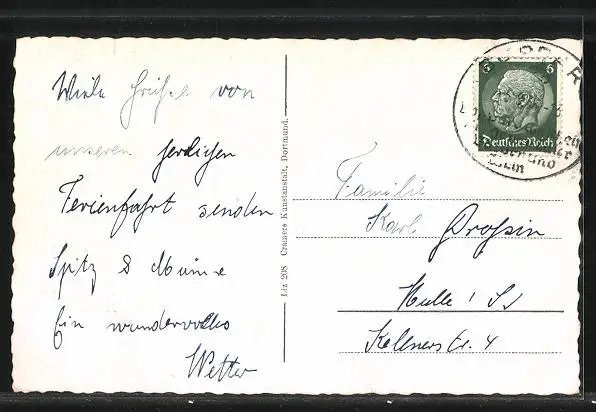 Viele Grüße von
unseren herlichen
Ferienfahrt senden
Spitz &
Ein wundervolles
Wetter
Liz 208 Cramers Kunstanstalt, Dortmund.
6 6
Deutsches Reich
Familie
Karl
Halle / S
Kellnerstr. 4